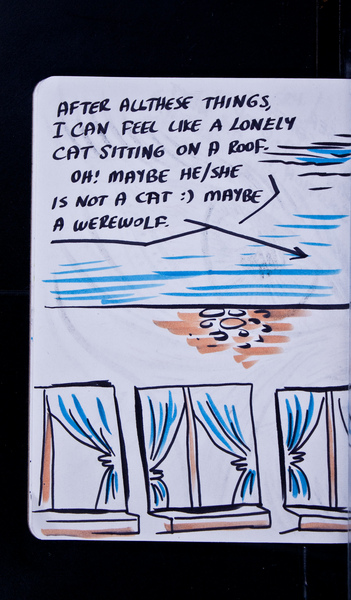 AFTER ALLTHESE THINGS,
I CAN FEEL LIKE A LONELY
CAT SITTING ON A ROOF.
OH! MAYBE HE/SHE
IS NOT A CAT :) MAYBE
A WEREWOLF.